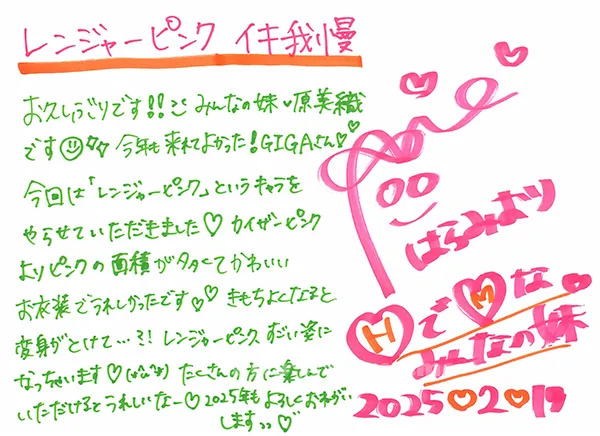 レンジャーピンク イキ我慢
お久しぶりです!! みんなの妹♥原美織
です 今年も来れてよかった!GIGAさん♡♡
今回は「レンジャーピンク」というキャラを
やらせていただきました♡ カイザーピンク
よりピンクの面積が多くてかわいい
お衣装でうれしかったです♡♡ きもちよくなると
変身がとけて…?! レンジャーピンク すごい姿に
なっちゃいます♡ たくさんの方に楽しんで
いただけるとうれしいなー♡ 2025年もよろしくおねがい
しますっっ♡
はらみおり
HでMな♥
みんなの妹
2025♡2♡19